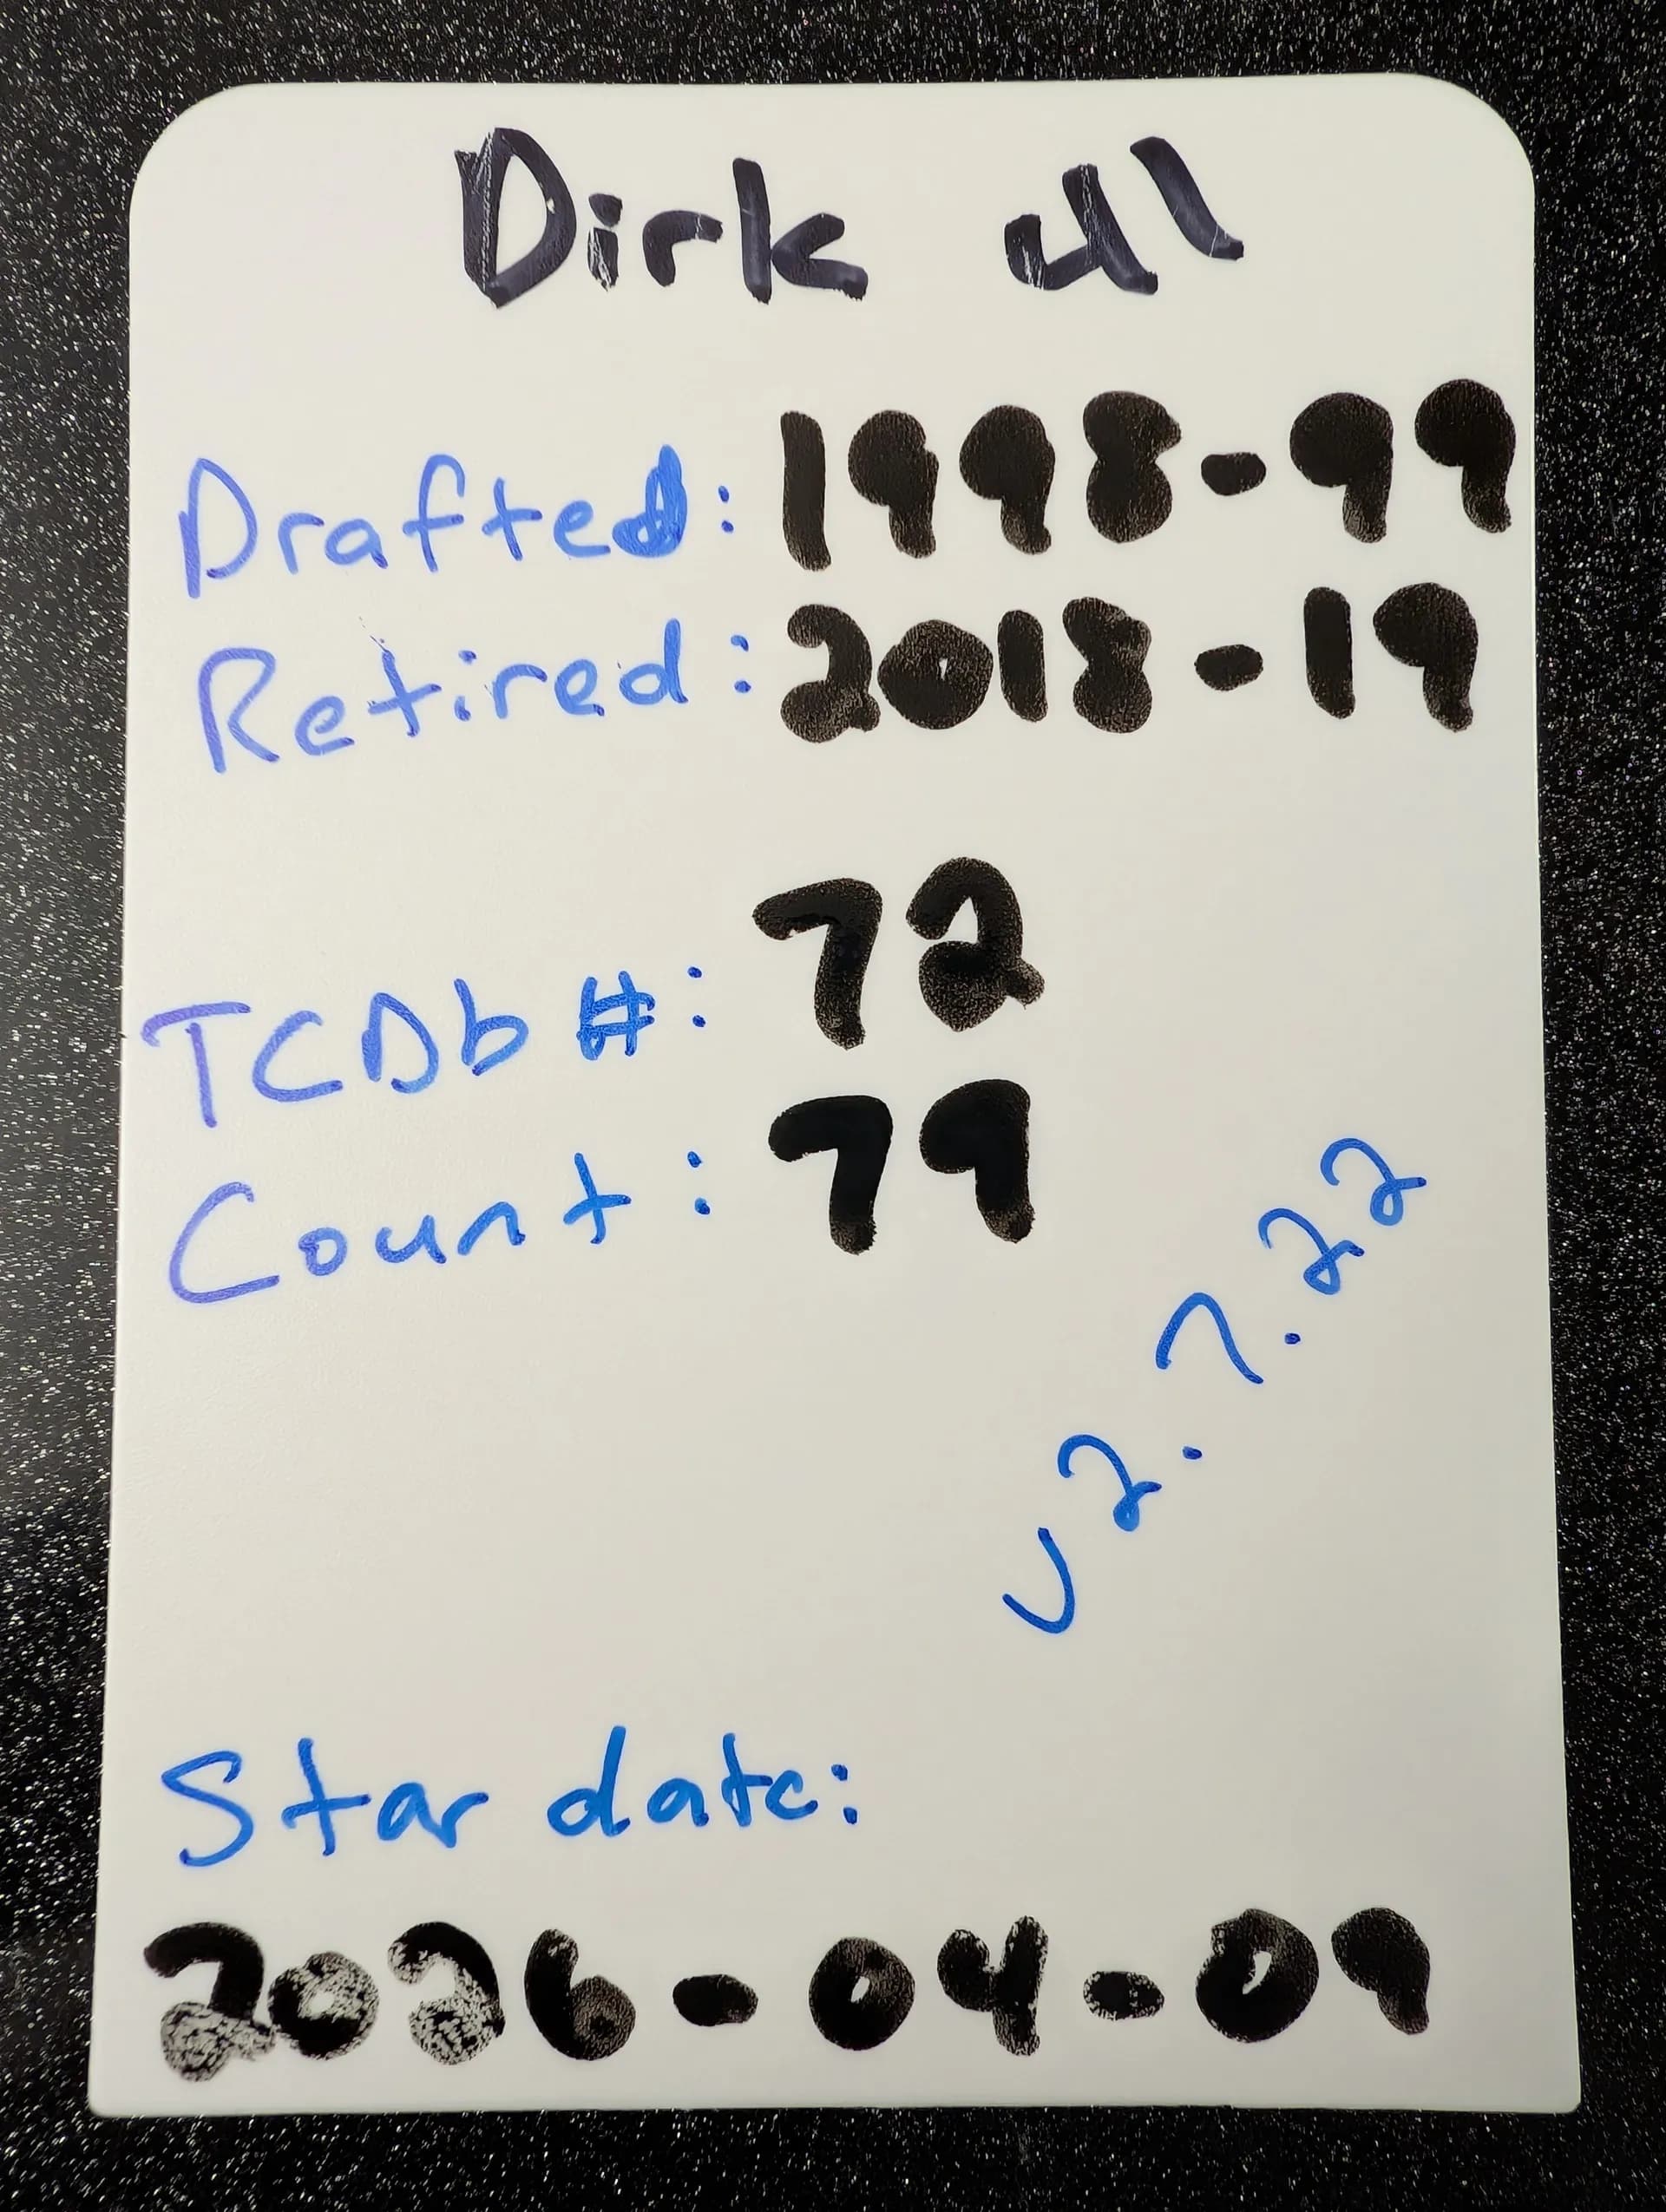 Dirk 41
Drafted: 1998-99
Retired: 2018-19
TCDb #: 72
Count: 79
v2.7.22
Star date:
2026-04-09